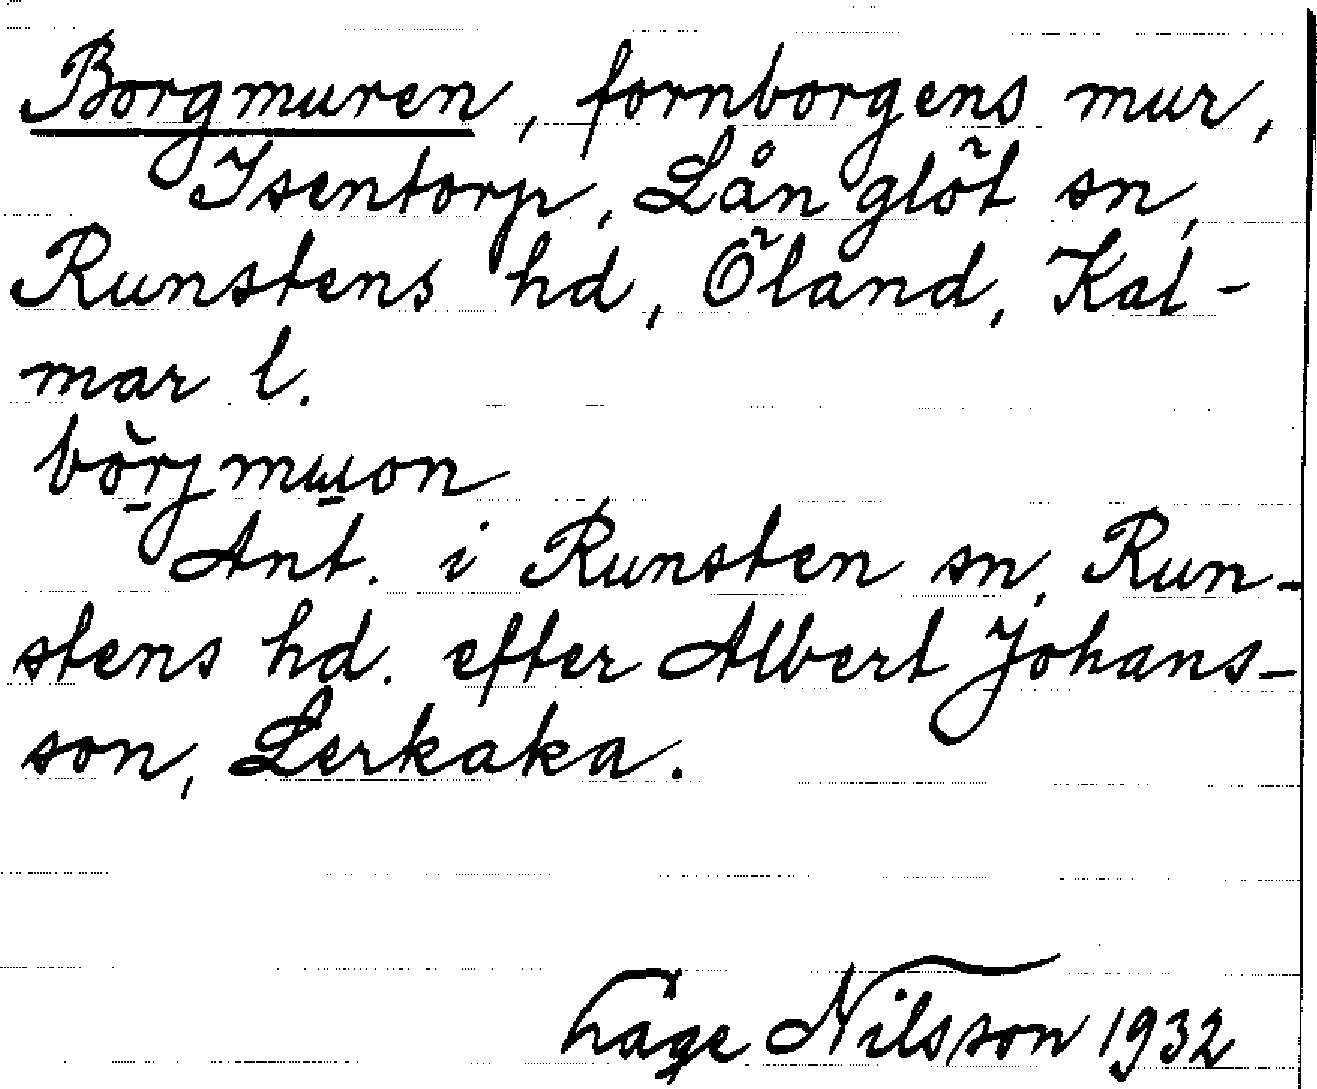 Borgmuren, fornborgens mur,
Isentorp, Långlöt sn,
Runstens hd, Öland, Kal-
mar l.
börjmɯon
Ant. i Runsten sn, Run-
stens hd. efter Albert Johans-
son, Lerkaka.
Lage Nilsson 1932